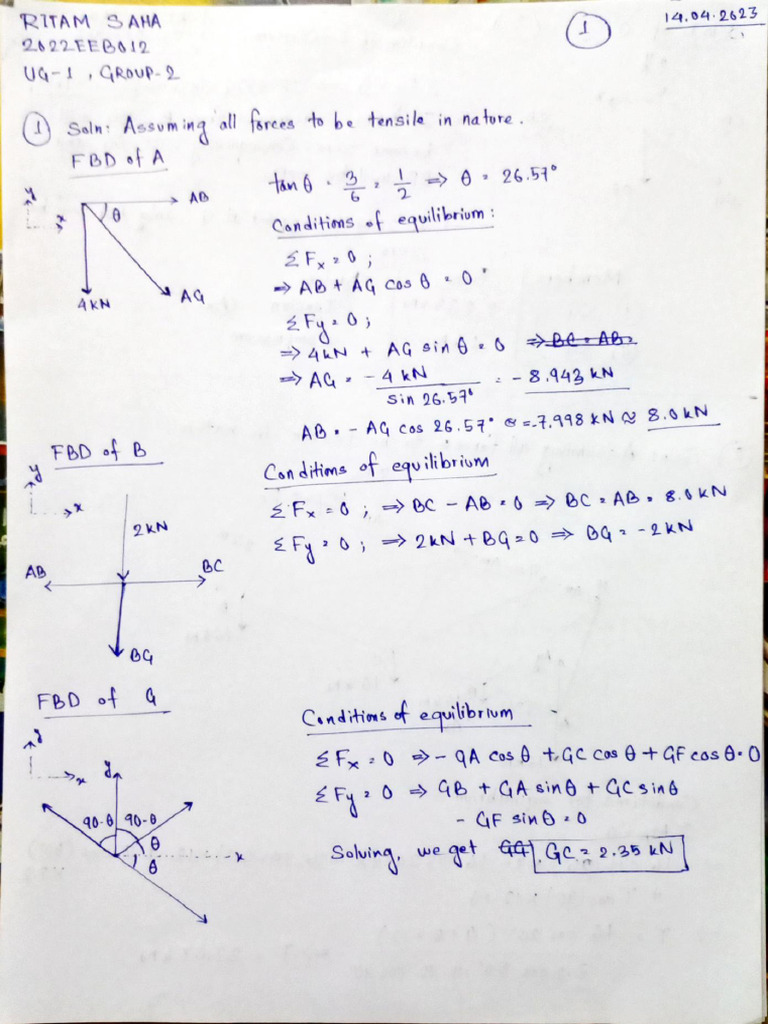 RITAM SAHA
2022EEB012
UG-1, GROUP-2
1
14.04.2023
1 Soln: Assuming all forces to be tensile in nature.
FBD of A
y
x
θ
AB
4KN
AG
tan θ = 3/6 = 1/2 ⇒ θ = 26.57°
Conditions of equilibrium:
ΣFx = 0 ;
⇒ AB + AG cos θ = 0
ΣFy = 0 ;
⇒ 4KN + AG sin θ = 0 ⇒ BC = AB =
⇒ AG = - 4 KN / sin 26.57° = - 8.943 KN
AB = - AG cos 26.57° = -7.998 KN ≈ 8.0 KN
FBD of B
y
x
2KN
AB
BC
BG
Conditions of equilibrium
ΣFx = 0 ; ⇒ BC - AB = 0 ⇒ BC = AB = 8.0 KN
ΣFy = 0 ; ⇒ 2KN + BG = 0 ⇒ BG = -2KN
FBD of G
y
x
y
90-θ 90-θ
θ
θ
x
Conditions of equilibrium
ΣFx = 0 ⇒ - GA cos θ + GC cos θ + GF cos θ = 0
ΣFy = 0 ⇒ GB + GA sin θ + GC sin θ
- GF sin θ = 0
Solving, we get GG GC = 2.35 KN